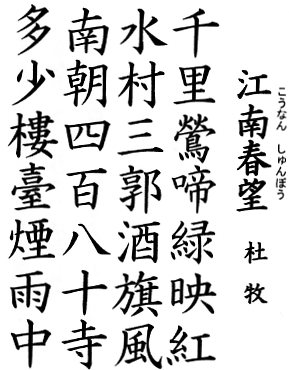 江南春望 杜牧
こうなん しゅんぼう
千里鶯啼緑映紅
水村三郭酒旗風
南朝四百八十寺
多少樓臺煙雨中